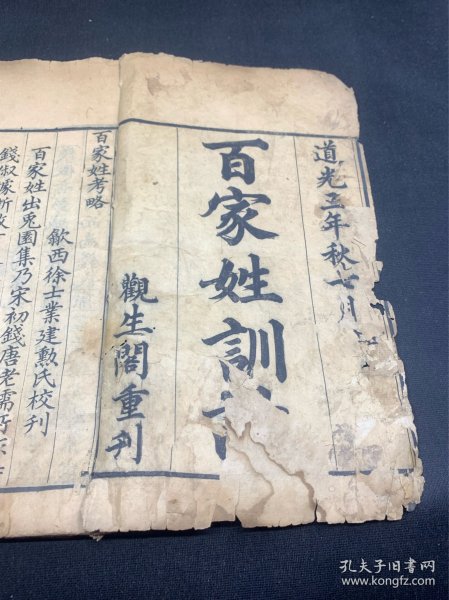 道光三年秋七月
百家姓訓
觀生閣重刋
百家姓考略
歙西徐士業建勲氏校刋
百家姓出兎園集乃宋初錢唐老儒所
錢俶據浙故
孔夫子旧书网
www.kongfz.com